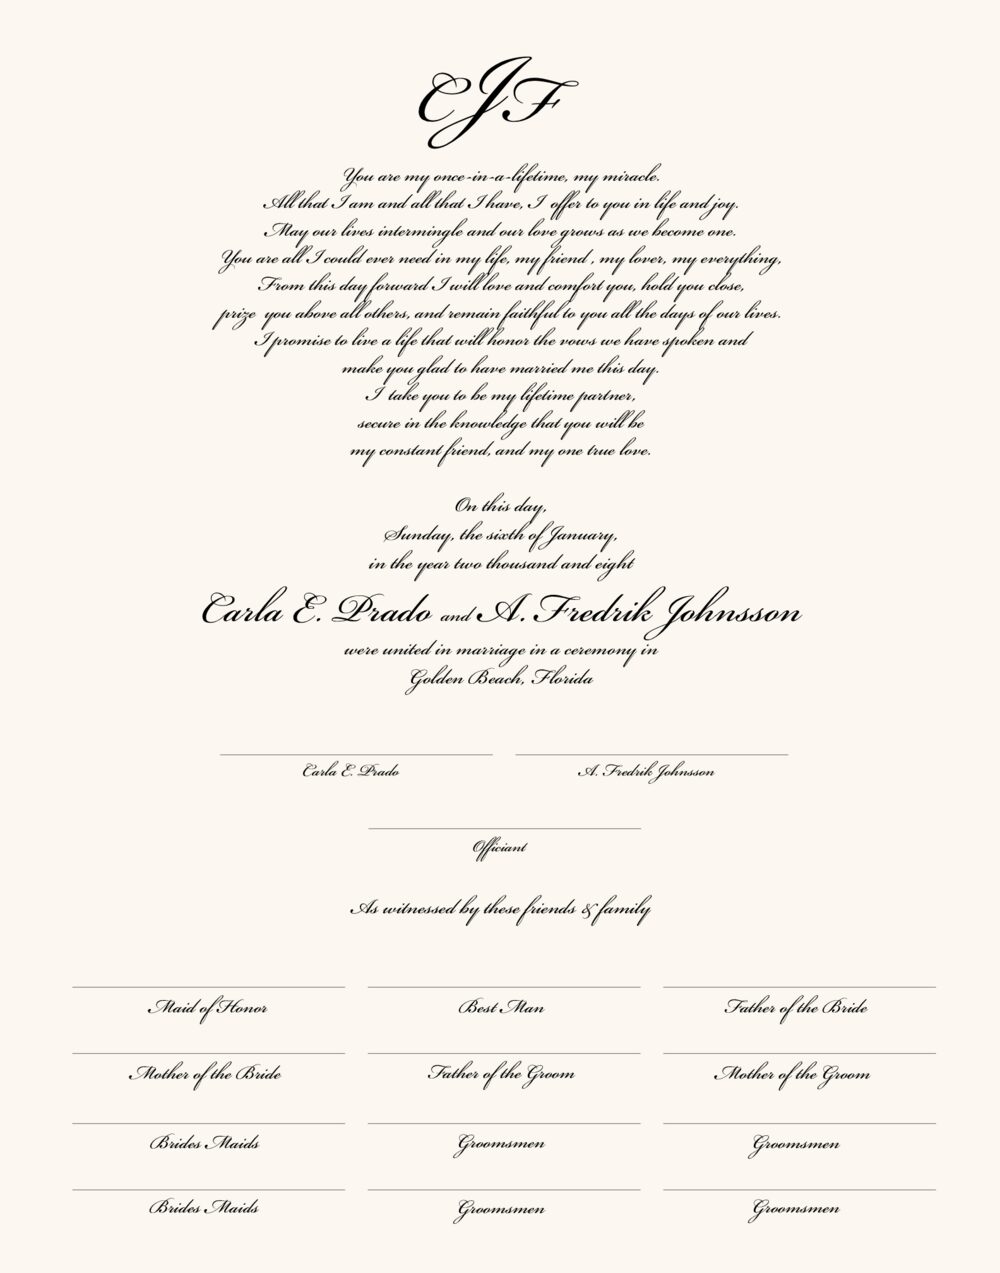 CJF
You are my once-in-a-lifetime, my miracle.
All that I am and all that I have, I offer to you in life and joy.
May our lives intermingle and our love grows as we become one.
You are all I could ever need in my life, my friend , my lover, my everything,
From this day forward I will love and comfort you, hold you close,
prize you above all others, and remain faithful to you all the days of our lives.
I promise to live a life that will honor the vows we have spoken and
make you glad to have married me this day.
I take you to be my lifetime partner,
secure in the knowledge that you will be
my constant friend, and my one true love.
On this day,
Sunday, the sixth of January,
in the year two thousand and eight
Carla E. Prado and A. Fredrik Johnsson
were united in marriage in a ceremony in
Golden Beach, Florida
Carla E. Prado A. Fredrik Johnsson
Officiant
As witnessed by these friends & family
Maid of Honor Best Man Father of the Bride
Mother of the Bride Father of the Groom Mother of the Groom
Brides Maids Groomsmen Groomsmen
Brides Maids Groomsmen Groomsmen